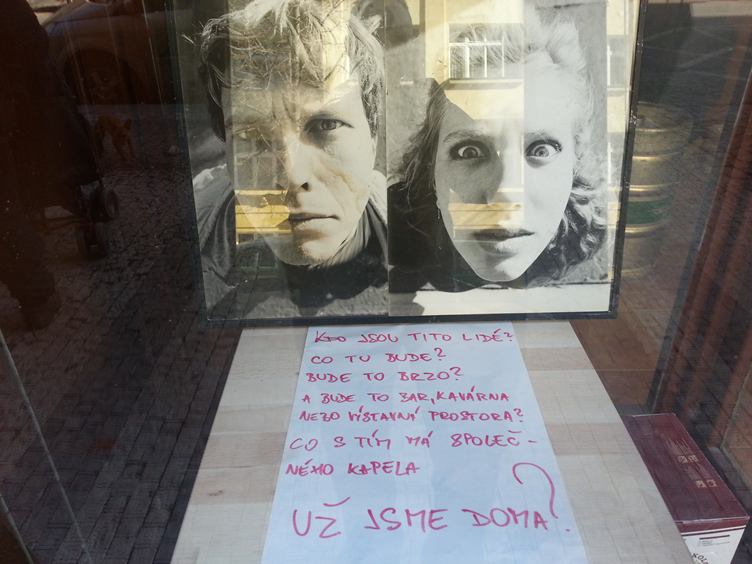 KDO JSOU TITO LIDÉ?
CO TU BUDE?
BUDE TO BRZO?
A BUDE TO BAR, KAVÁRNA
NEBO VÝSTAVNÍ PROSTORA?
CO S TÍM MÁ SPOLEČ-
NÉHO KAPELA
UŽ JSME DOMA?